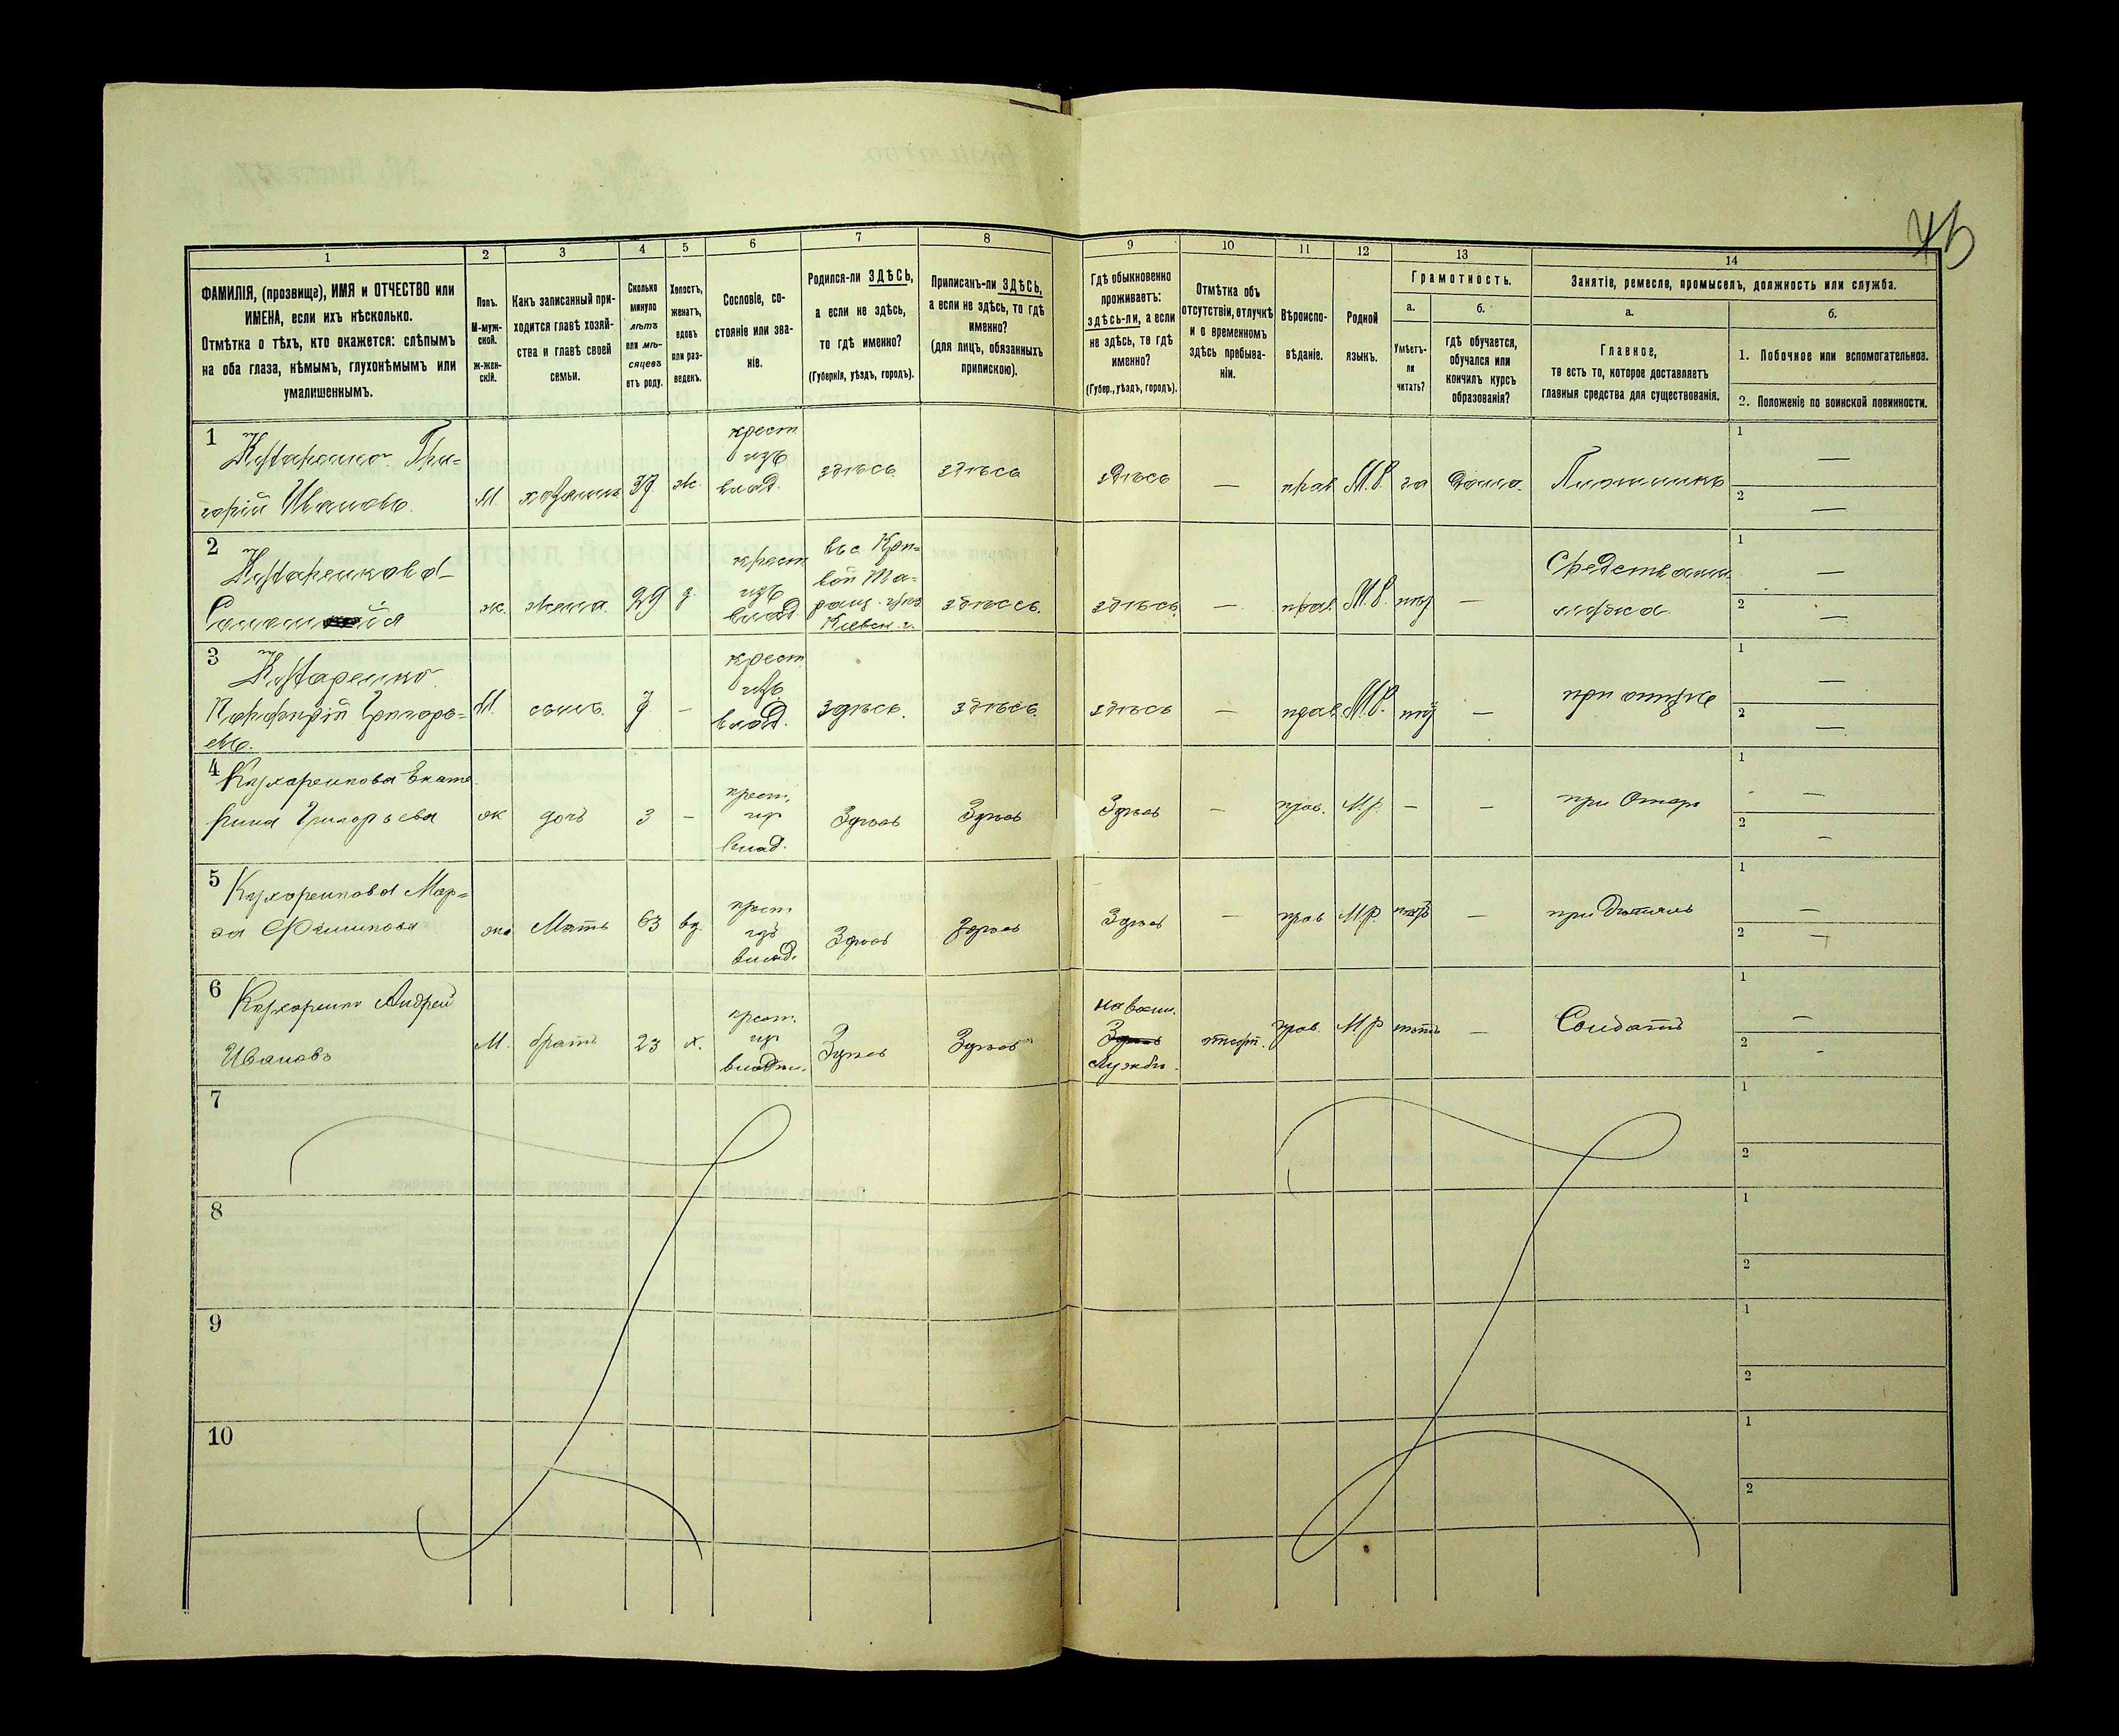 45
1
2
3
4
5
6
7
8
9
10
11
12
13
14
ФАМИЛІЯ, (прозвище), ИМЯ и ОТЧЕСТВО или
ИМЕНА, если ихъ нѣсколько.
Отмѣтка о тѣхъ, кто окажется: слѣпымъ
на оба глаза, нѣмымъ, глухонѣмымъ или
умалишеннымъ.
Полъ.
М-муж-
ской.
Ж-жен-
скій.
Какъ записанный при-
ходится главѣ хозяй-
ства и главѣ своей
семьи.
Сколько
минуло
лѣтъ
или мѣ-
сяцевъ
отъ роду.
Холостъ,
женатъ,
вдовъ
или раз-
веденъ.
Сословіе, со-
стояніе или зва-
ніе.
Родился-ли ЗДѢСЬ,
а если не здѣсь,
то гдѣ именно?
(Губернія, уѣздъ, городъ).
Приписанъ-ли ЗДѢСЬ,
а если не здѣсь, то гдѣ
именно?
(для лицъ, обязанныхъ
припискою).
Гдѣ обыкновенно
проживаетъ:
здѣсь-ли, а если
не здѣсь, то гдѣ
именно?
(Губер., уѣздъ, городъ).
Отмѣтка объ
отсутствіи, отлучкѣ
и о временномъ
здѣсь пребыва-
ніи.
Вѣроиспо-
вѣданіе.
Родной
языкъ.
Грамотность.
а.
Умѣетъ-
ли
читать?
б.
гдѣ обучается,
обучался или
кончилъ курсъ
образованія?
Занятіе, ремесло, промыселъ, должность или служба.
а.
Главное,
то есть то, которое доставляетъ
главныя средства для существованія.
б.
1. Побочное или вспомогательное.
2. Положеніе по воинской повинности.
1
Гри-
горій Ивановъ.
М.
хозяинъ
37
ж.
крест
изъ
влад.
здѣсь
здѣсь
здѣсь
—
прав
М.Р.
да
дома
Плотникъ
1 —
2 —
2
ж.
жена
29
з
крест
изъ
влад
Киевск. г.
здѣсь.
здѣсь
—
прав.
М.Р.
—
Средствами
мужа
1 —
2 —
3
Григорь-
евъ.
М.
сынъ.
7
—
крест
изъ
влад.
здѣсь.
здѣсь.
здѣсь
—
прав
М.Р.
—
при отцѣ
1 —
2 —
4
Екате
рина Григорьева
ж
дочь
3
—
крест.
из
влад.
Здѣсь
Здѣсь
Здѣсь
—
прав.
М.р.
—
—
при Отцѣ
1 —
2 —
5
жс
Мать
63
вд.
крест.
изъ
влад.
Здѣсь
Здѣсь
Здѣсь
—
прав
М.р.
нѣтъ
—
при дѣтяхъ
1 —
2 —
6
Андрей
Ивановъ
М.
братъ
23
х.
крест.
из
Здѣсь
Здѣсь
на воен.
службѣ.
прав.
М.р
нѣтъ
—
Солдатъ
1 —
2 -
7
1
2
8
1
2
9
1
2
10
1
2